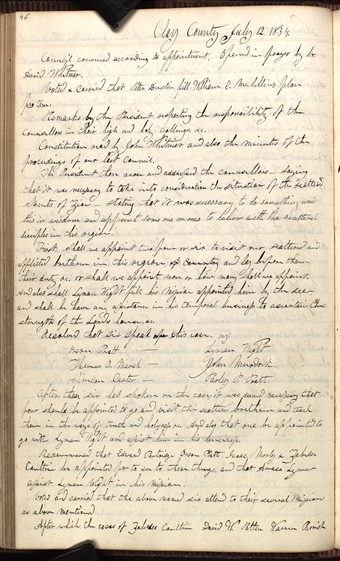 46
Clay County July 12. 1834.
Council convened according to appointment. Opened in prayer by br.
David Whitmer.
Voted & carried that Peter Dustin fill William E. McLellins place
pro tem.
Remarks by the President respecting the responsibility of the
Councillors in their high and holy callings &c.
Constitution read by John Whitmer and also the minutes of the
proceedings of our last Council.
The President then arose and addressed the councillors — Saying
that it was necessary to take into consideration the situation of the scattered
Saints of Zion. Stating that it was necessary to do something used
this in wisdom and appoint some one or more to labor with the scattered
disciples in this region.
First. Shall we appoint two four or six to visit our scattered and
afflicted brethren in this region of Country and lay before them
their duty &c. or shall we appoint more or how many shall we appoint.
And also shall Lyman Wight fill his mission appointed him by the
and shall he have any assistance in his temporal business to ascertain the
strength of the Lords house, &c.
Resolved that six speak upon this case. viz
Orson Pratt — Lyman Wight
Thomas B. Marsh — John Murdock
Simeon Carter — Parley P. Pratt.
After these six had spoken on the case, it was found necessary that
four should be appointed to go and visit the scattered brethren and teach
them in the ways of truth and holiness. And also that one be appointed to
go with Lyman Wight and assist him in his business.
Recommended that Edward Partridge Orson Pratt Isaac Morley & Zebedee
Coultrin be appointed for to see to these things, and that Amasa Lyman
assist Lyman Wight in his mission.
Voted and carried that the above named six attend to their several missions
as above mentioned
After which the cases of Zebedee Coultrin David W. Patten Warren Parrish